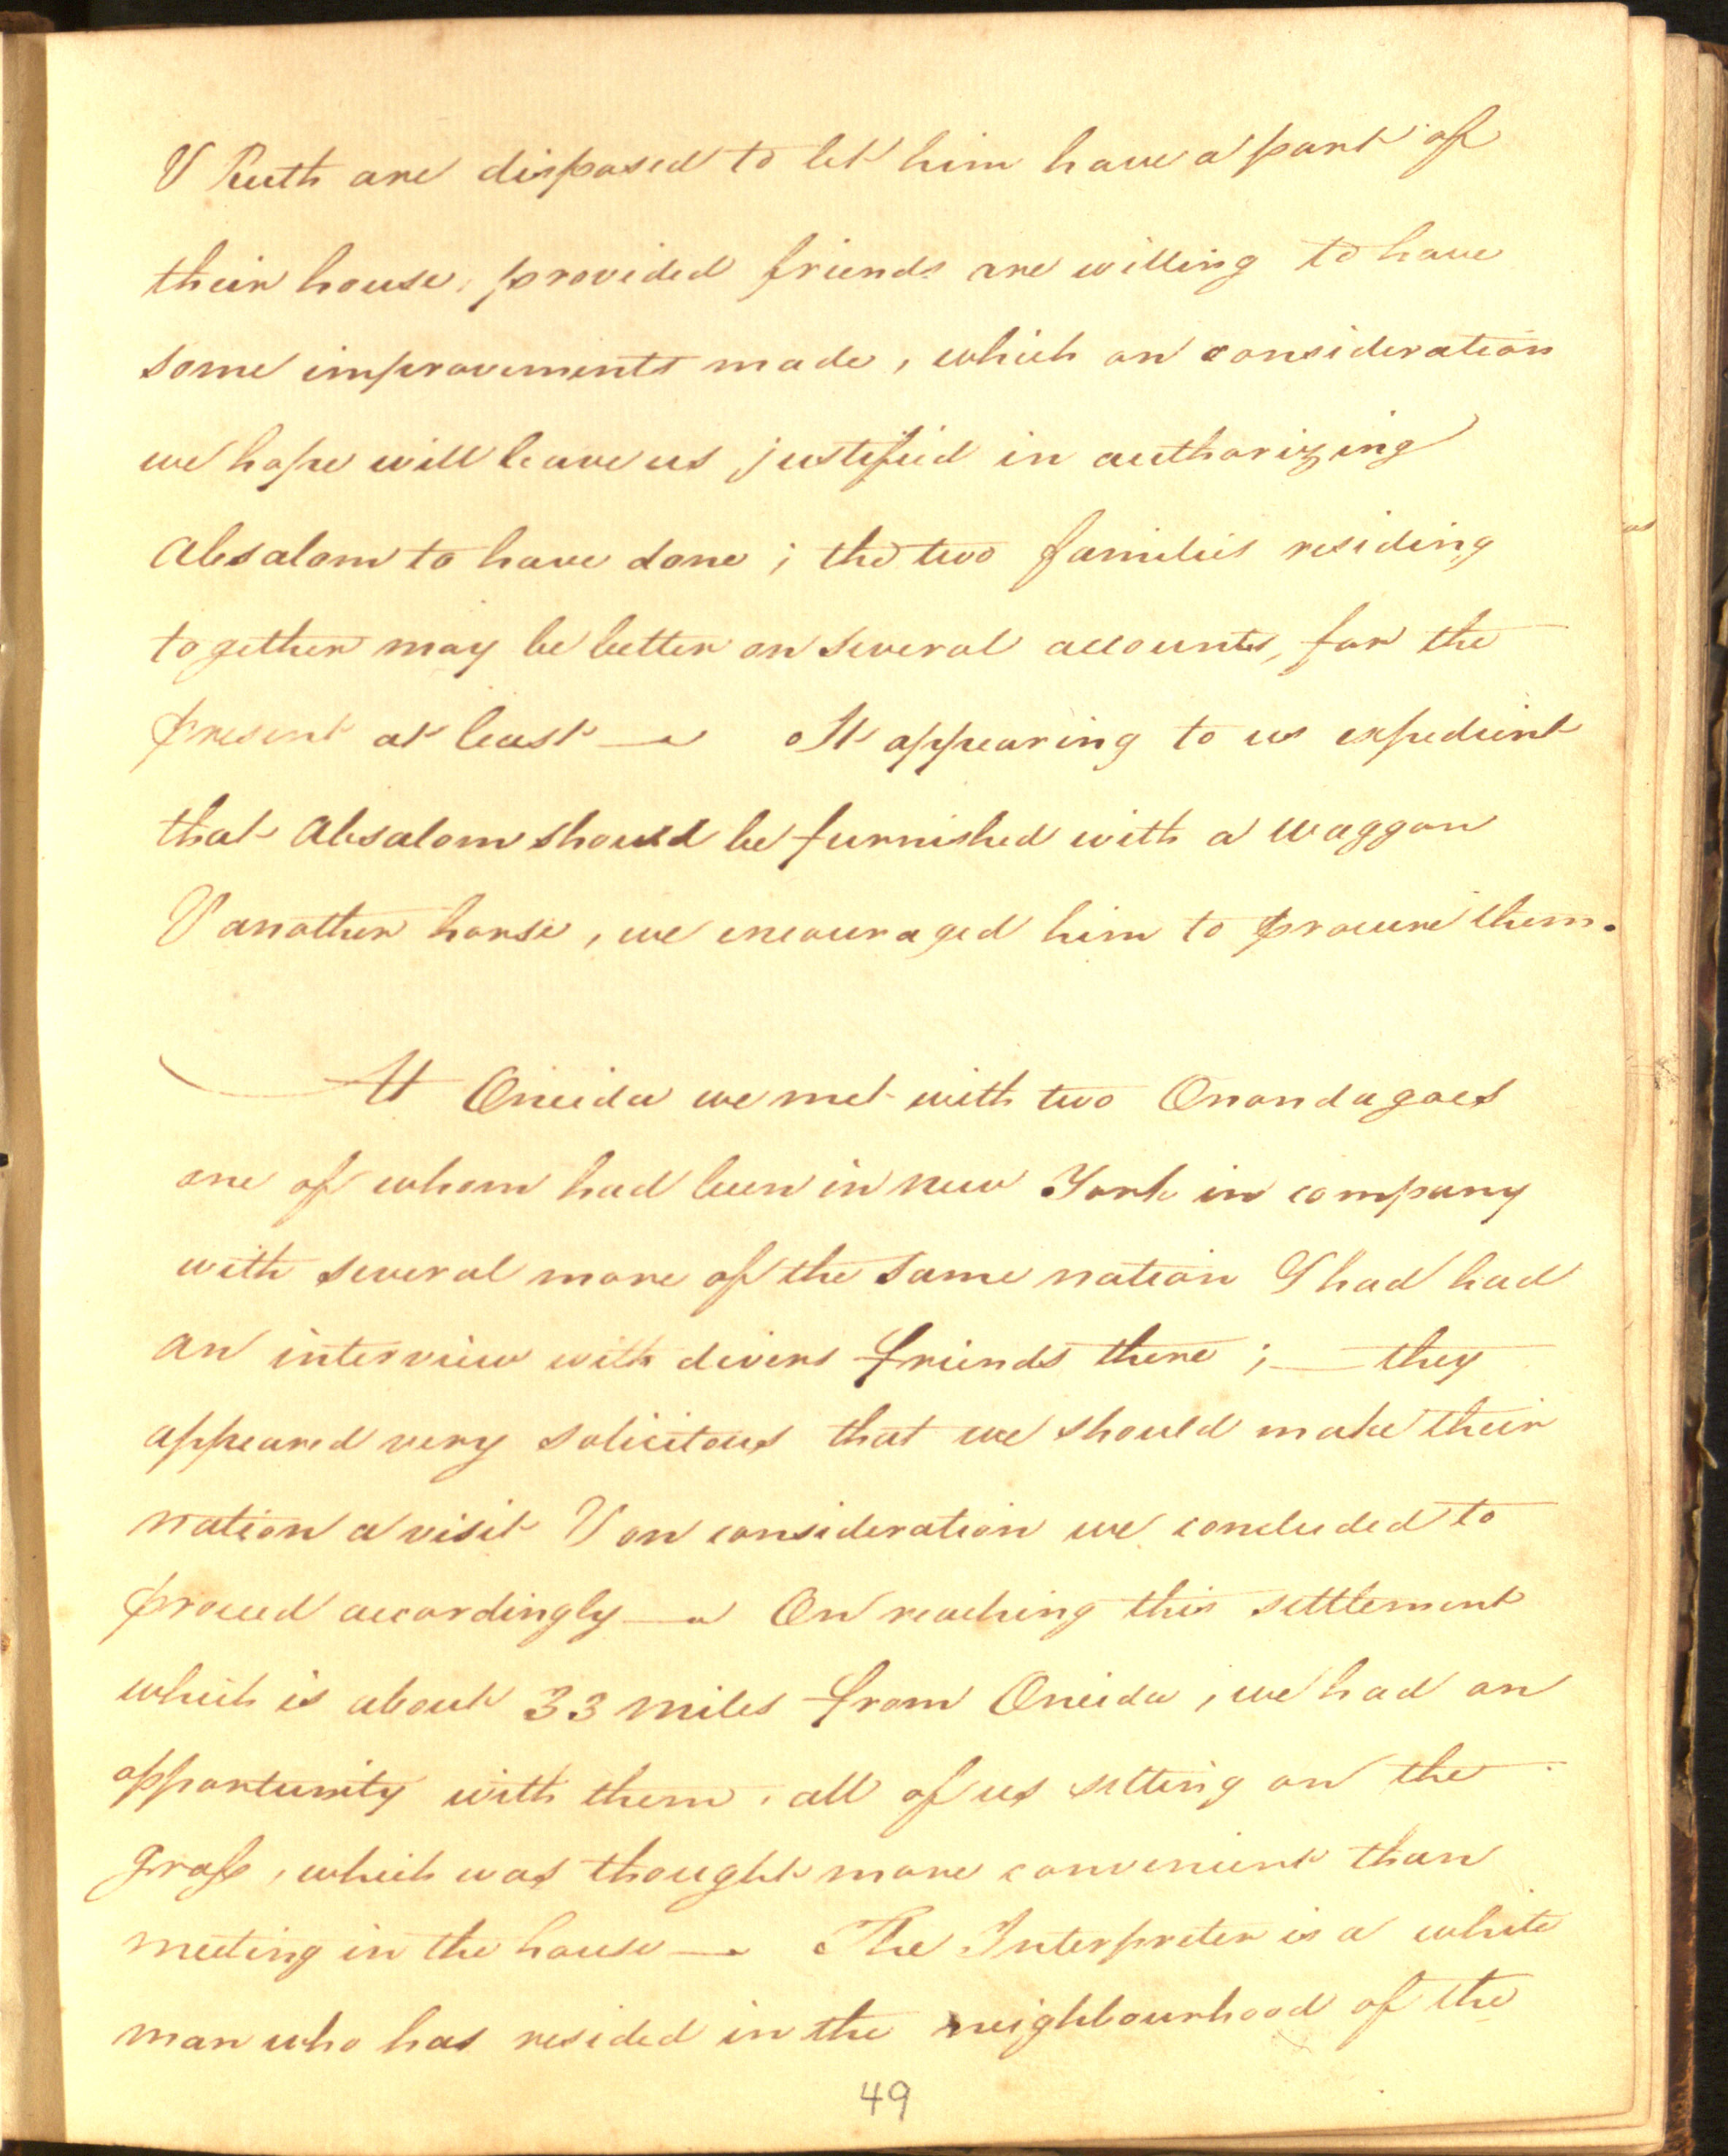 & Ruth are disposed to let him have a part of
their house, provided friends are willing to have
some improvements made, which on consideration
we hope will leave us justified in authorizing
Absalom to have done; the two families residing
together may be better on several accounts, for the
present at least — It appearing to us expedient
that Absalom should be furnished with a waggon
& another horse, we encouraged him to procure them.
At Oneida we met with two Onondagoes
one of whom had been in New York in company
with several more of the same nation & had had
an interview with divers friends there; — they
appeared very solicitous that we should make their
nation a visit & on consideration we concluded to
proceed accordingly — On reaching this settlement
which is about 33 miles from Oneida, we had an
opportunity with them, all of us setting on the
grass, which was thought more convenient than
meeting in the house — The Interpreter is a white
man who has resided in the neighbourhood of the
49